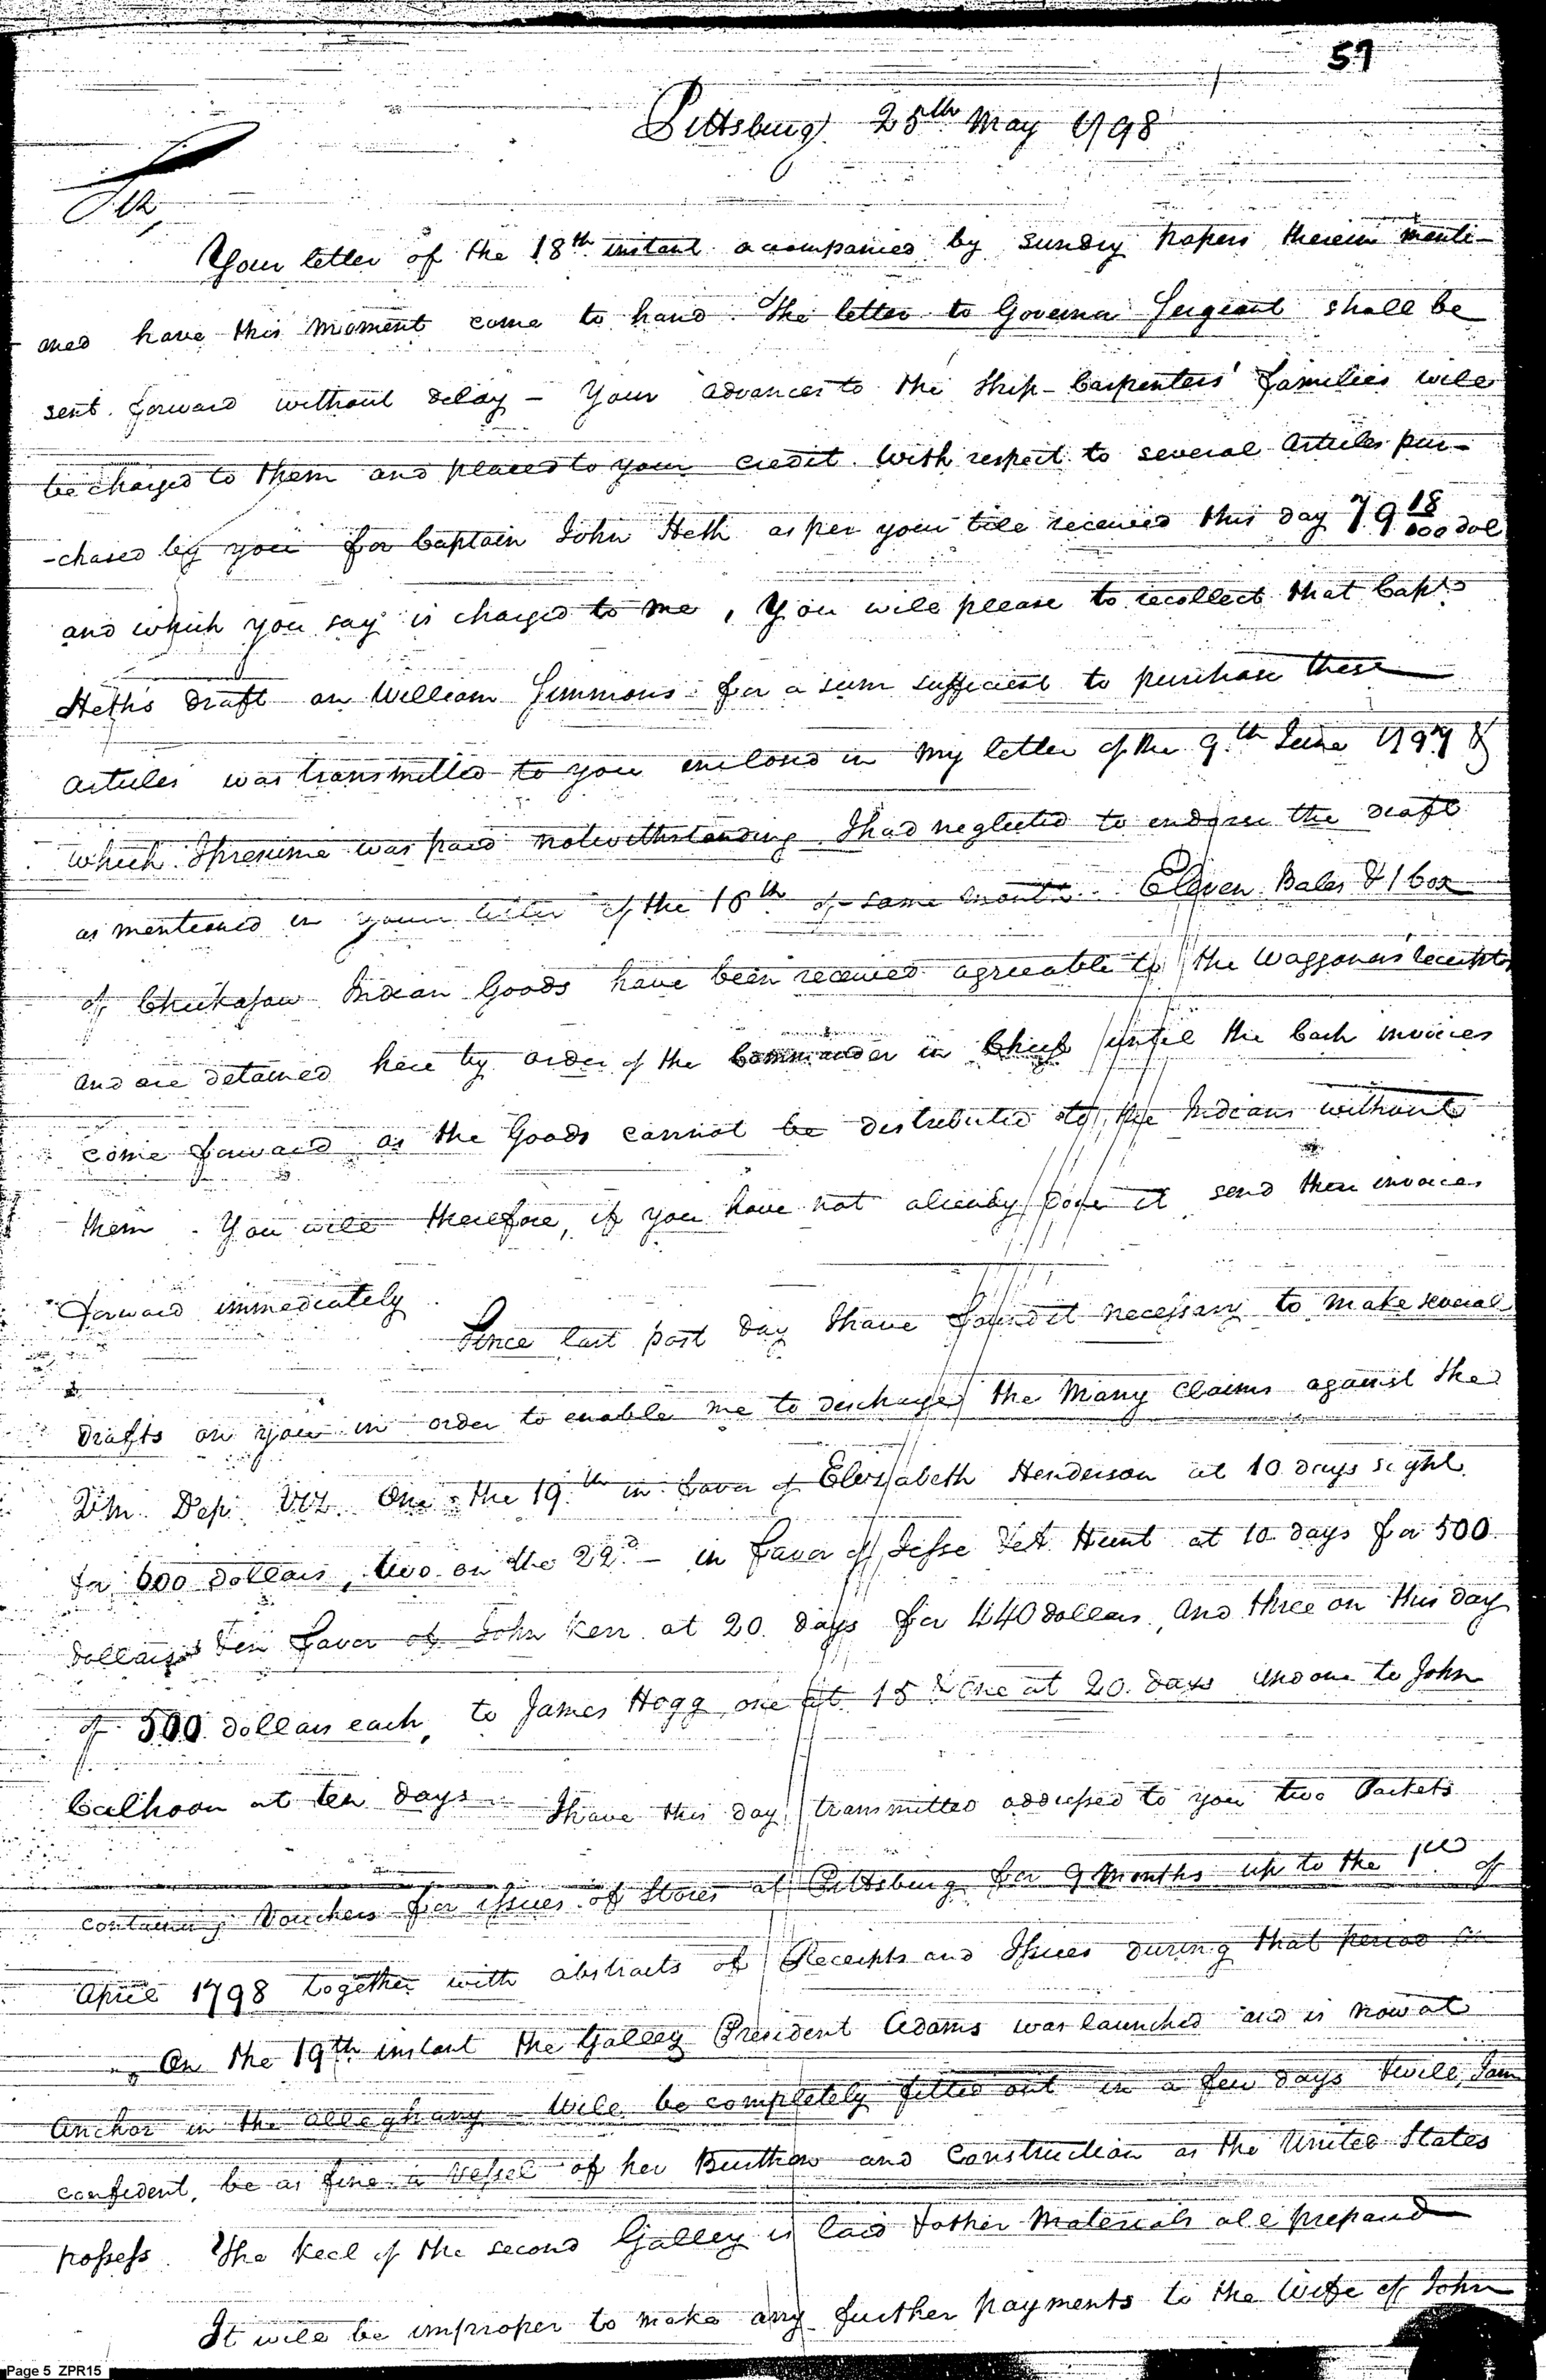 57
Pittsburg 25th May 1798
Sir,
Your letter of the 18th instant accompanied by sundry papers therein menti-
-oned have this moment come to hand. The letter to Governor Sergeant shall be
sent forward without delay - Your advances to the Ship-Carpenters' families will
be charged to them and placed to your credit. With respect to several articles pur-
-chased by you for Captain John Heth as per your bill received this day 79 18/100 dol
and which you say is charged to me, You will please to recollect that Capt
Heth's draft on William Simmons for a sum sufficient to purchase these
articles was transmitted to you inclosed in my letter of the 9th June 1797 &
which I presume was paid notwithstanding I had neglected to endorse the draft
as mentioned in your letter of the 16th of same month. Eleven Bales & 1 box
of Chickasaw Indian Goods have been received agreeable to the Waggoners receipts
and are detained here by order of the Commander in Chief until the Cash invoices
come forward as the Goods cannot be distributed to the Indians without
them. You will therefore, if you have not already done it send these invoices
forward immediately.
Since last post day I have found it necessary to make several
drafts on you in order to enable me to discharge the Many Claims against the
Q.M. Dep. Viz. One the 19th in favor of Elizabeth Henderson at 10 days sight
for 600 dollars, two on the 22d - in favor of Jesse & A Hunt at 10 days for 500
dollars & in favor of John Kerr at 20 days for 440 dollars, and three on this day
of 500 dollars each, to James Hogg one at 15 & one at 20 days and one to John
Calhoon at ten days. I have this day transmitted addressed to you two Packets
containing Vouchers for issues of Stores at Pittsburg for 9 Months up to the 1st of
April 1798 together with abstracts of Receipts and Issues during that period
On the 19th instant the Galley President Adams was launched and is now at
Anchor in the Alleghany - Will be completely fitted out in a few days & will, I am
confident, be as fine a Vessel of her Burthen and Construction as the United States
possess. The keel of the second Galley is laid & other Materials all prepared
It will be improper to make any further payments to the Wife of John
Page 5 ZPR15